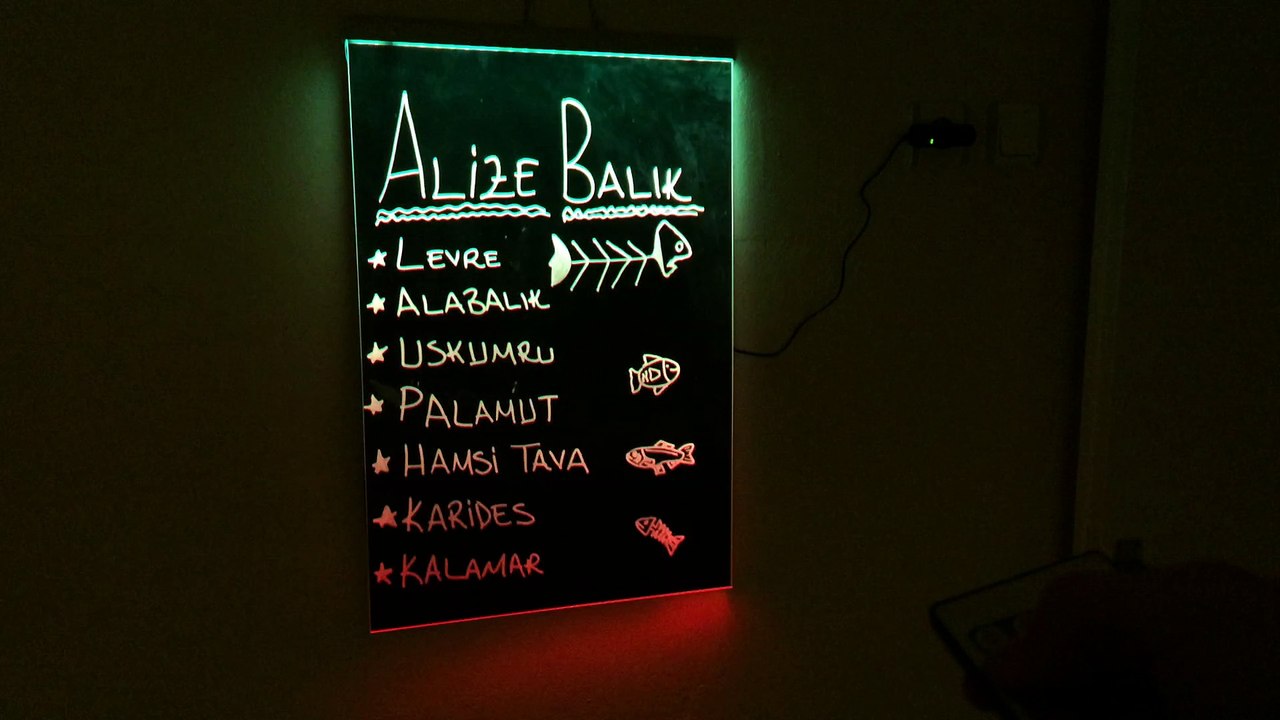 ALİZE BALIK
LEVRE
ALABALIK
USKUMRU
PALAMUT
HAMSİ TAVA
KARİDES
KALAMAR